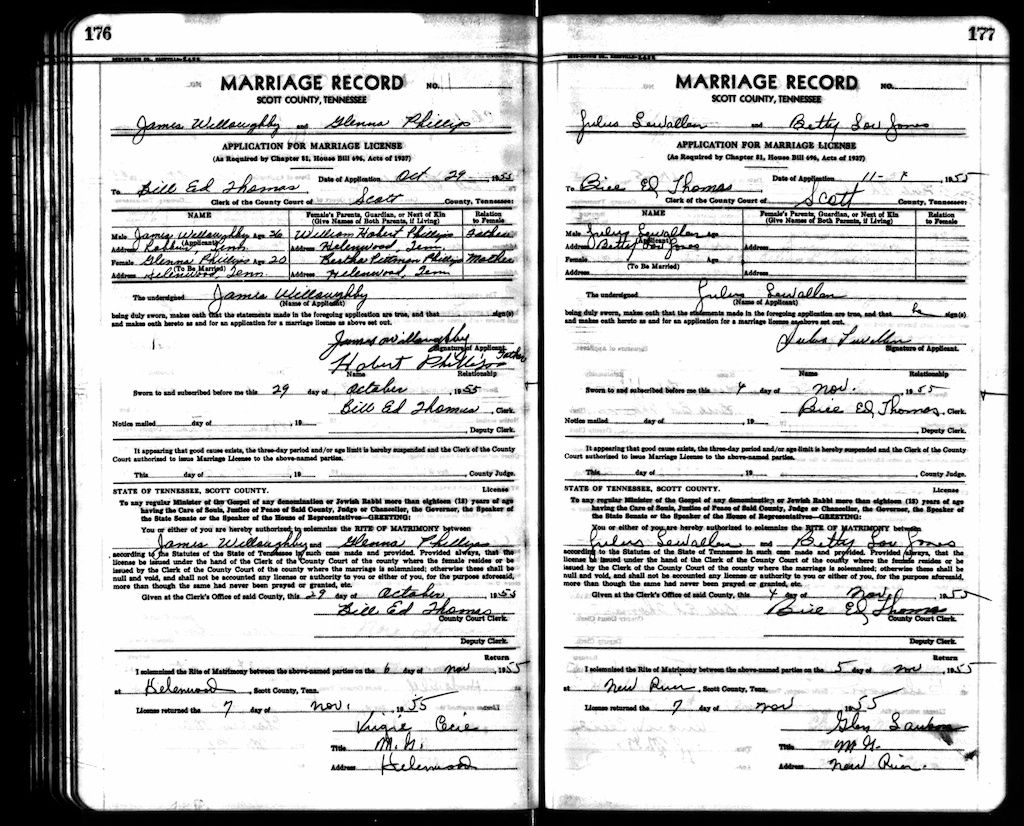 176
MARRIAGE RECORD NO.
SCOTT COUNTY, TENNESSEE
James Willoughby and Glenna Phillips
APPLICATION FOR MARRIAGE LICENSE
(As Required by Chapter 81, House Bill 696, Acts of 1937)
Date of Application Oct 29 1955
To Bill Ed Thomas
Clerk of the County Court of Scott County, Tennessee:
NAME Female's Parents, Guardian, or Next of Kin (Give Names of Both Parents, if Living) Relation to Female
Male James Willoughby Age 26 William Hobert Phillips Father
(Applicant)
Address Robbins, Tenn Address Helenwood, Tenn.
Female Glenna Phillips Age 20 Bertha Pittman Phillips Mother
(To Be Married)
Address Helenwood, Tenn. Address Helenwood, Tenn
The undersigned James Willoughby
(Name of Applicant)
being duly sworn, makes oath that the statements made in the foregoing application are true, and that sign(s)
and makes oath hereto as and for an application for a marriage license as above set out.
James Willoughby
Signature of Applicant.
Hobert Phillips Father
Name Relationship
Sworn to and subscribed before me this 29 day of October, 1955
Bill Ed Thomas, Clerk.
Notice mailed day of , 19
, Deputy Clerk.
It appearing that good cause exists, the three-day period and/or age limit is hereby suspended and the Clerk of the County
Court authorized to issue Marriage License to the above-named parties.
This day of , 19 , County Judge.
STATE OF TENNESSEE, SCOTT COUNTY. License
To any regular Minister of the Gospel of any denomination or Jewish Rabbi more than eighteen (18) years of age
having the Care of Souls, Justice of Peace of Said County, Judge or Chancellor, the Governor, the Speaker of
the State Senate or the Speaker of the House of Representatives—GREETING:
You or either of you are hereby authorized to solemnize the RITE OF MATRIMONY between
James Willoughby and Glenna Phillips
according to the Statutes of the State of Tennessee in such case made and provided. Provided always, that the
license be issued under the hand of the Clerk of the County Court of the county where the female resides or be
issued by the Clerk of the County where the marriage is solemnized; otherwise these shall be
null and void, and shall not be accounted any license or authority to you or either of you, for the purpose aforesaid,
more than though the same had never been prayed or granted, etc.
Given at the Clerk's Office of said County, this 29 day of October 1955
Bill Ed Thomas
County Court Clerk.
Deputy Clerk.
Return
I solemnized the Rite of Matrimony between the above-named parties on the 6 day of nov, 1955
at Helenwood, Scott County, Tenn.
License returned the 7 day of nov. 1955
Title M.G.
Address Helenwood
177
MARRIAGE RECORD NO.
SCOTT COUNTY, TENNESSEE
Julus Lewallen and Betty Lou Jones
APPLICATION FOR MARRIAGE LICENSE
(As Required by Chapter 81, House Bill 696, Acts of 1937)
Date of Application 11- 1955
To Bill Ed Thomas
Clerk of the County Court of Scott County, Tennessee:
NAME Female's Parents, Guardian, or Next of Kin (Give Names of Both Parents, if Living) Relation to Female
Male Julus Lewallen Age
(Applicant)
Address Betty Lou Jones Address
Female Age
(To Be Married)
Address Address
The undersigned Julus Lewallen
(Name of Applicant)
being duly sworn, makes oath that the statements made in the foregoing application are true, and that he sign(s)
and makes oath hereto as and for an application for a marriage license as above set out.
Julus Lewallen
Signature of Applicant.
Name Relationship
Sworn to and subscribed before me this 4 day of nov., 1955
Bill Ed Thomas, Clerk.
Notice mailed day of , 19
, Deputy Clerk.
It appearing that good cause exists, the three-day period and/or age limit is hereby suspended and the Clerk of the County
Court authorized to issue Marriage License to the above-named parties.
This day of , 19 , County Judge.
STATE OF TENNESSEE, SCOTT COUNTY. License
To any regular Minister of the Gospel of any denomination or Jewish Rabbi more than eighteen (18) years of age
having the Care of Souls, Justice of Peace of Said County, Judge or Chancellor, the Governor, the Speaker of
the State Senate or the Speaker of the House of Representatives—GREETING:
You or either of you are hereby authorized to solemnize the RITE OF MATRIMONY between
Julus Lewallen and Betty Lou Jones
according to the Statutes of the State of Tennessee in such case made and provided. Provided always, that the
license be issued under the hand of the Clerk of the County Court of the county where the female resides or be
issued by the Clerk of the County where the marriage is solemnized; otherwise these shall be
null and void, and shall not be accounted any license or authority to you or either of you, for the purpose aforesaid,
more than though the same had never been prayed or granted, etc.
Given at the Clerk's Office of said County, this 4 day of Nov 1955
Bill Ed Thomas
County Court Clerk.
Deputy Clerk.
Return
I solemnized the Rite of Matrimony between the above-named parties on the 5 day of nov, 1955
at New River, Scott County, Tenn.
License returned the 7 day of nov 1955
Glen
Title M.G.
Address New River.